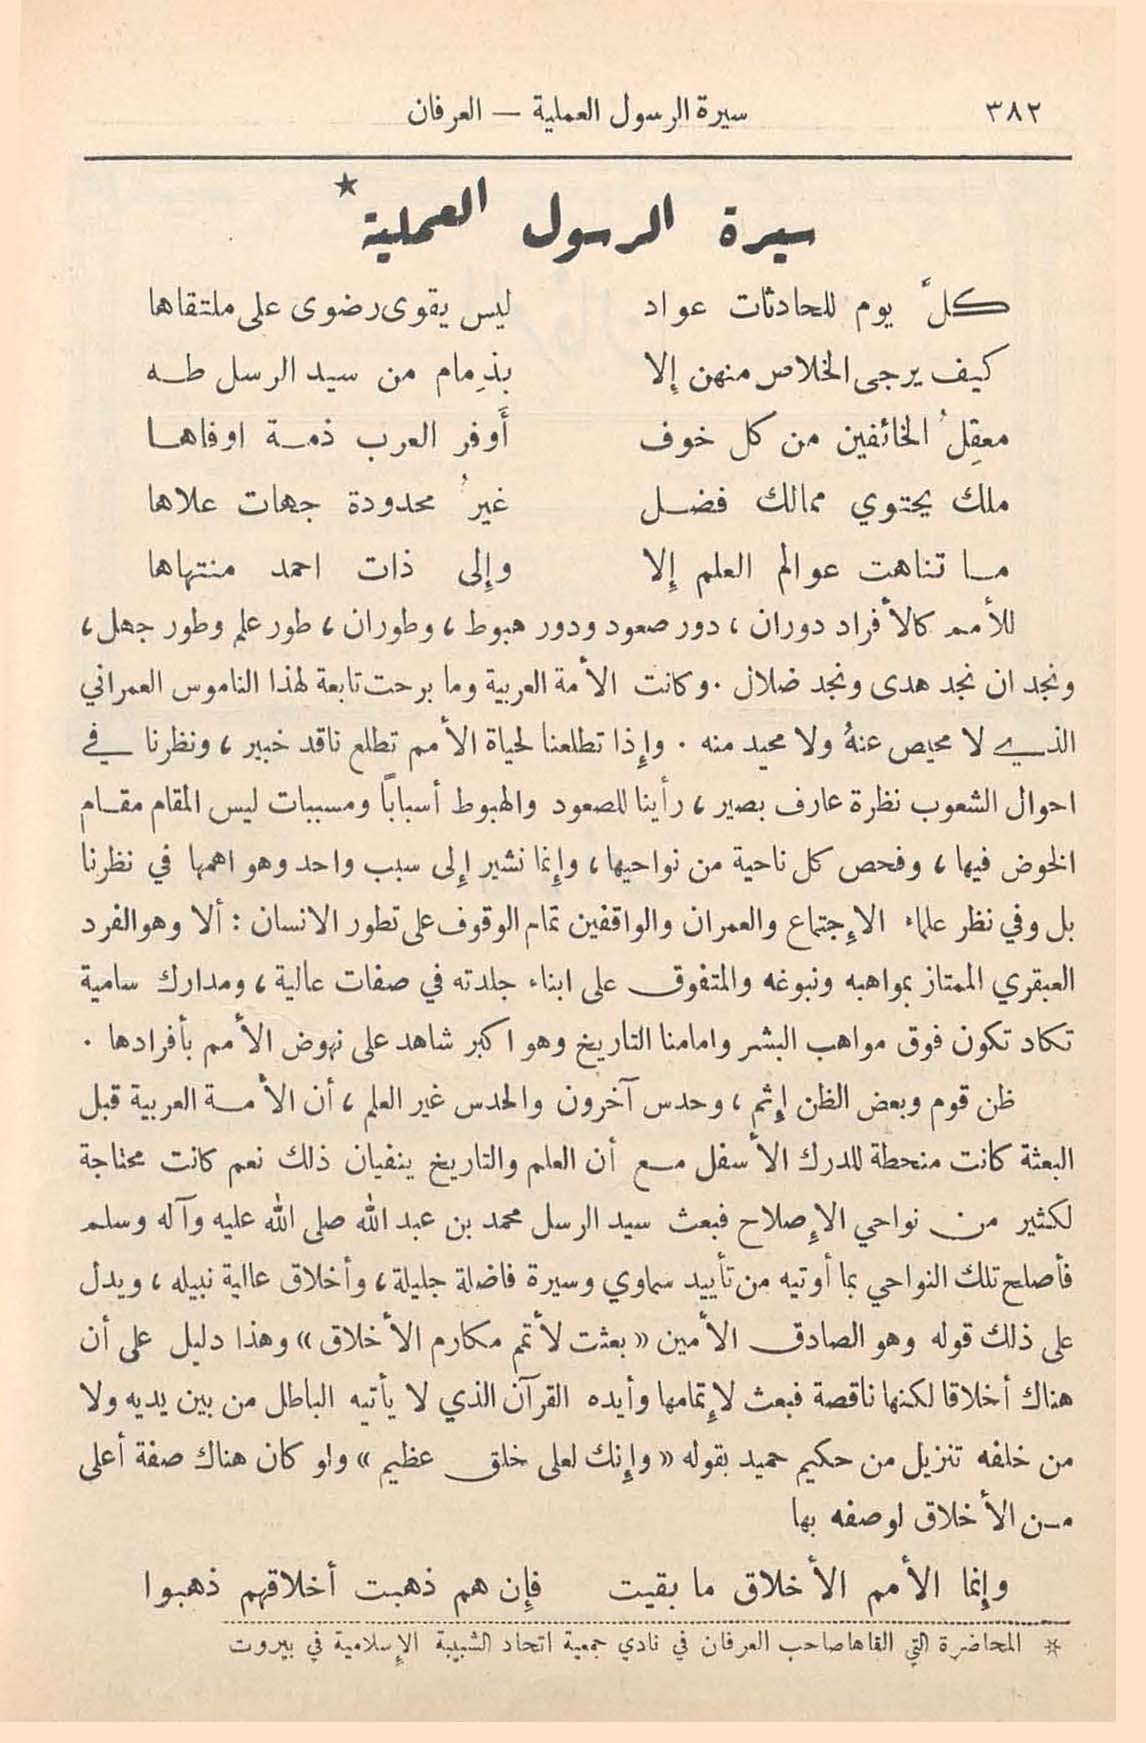 ٣٨٢ سيرة الرسول العملية — العرفان
سيرة الرسول العملية*
كلَّ يوم للحادثات عواد ليس يقوى رضوى على ملتقاها
كيف يرجى الخلاص منهن إلا بذِمام من سيد الرسل طه
معقِلُ الخائفين من كل خوف أَوفر العرب ذمة اوفاها
ملك يحتوي ممالك فضل غيرُ محدودة جهات علاها
ما تناهت عوالم العلم إلا وإلى ذات احمد منتهاها
للأمم كالأفراد دوران ، دور صعود ودور هبوط ، وطوران ، طور علم وطور جهل ،
ونجد ان نجد هدى ونجد ضلال . وكانت الأمة العربية وما برحت تابعة لهذا الناموس العمراني
الذي لا محيص عنهُ ولا محيد منه . وإذا تطلعنا لحياة الأمم تطلع ناقد خبير ، ونظرنا في
احوال الشعوب نظرة عارف بصير ، رأينا للصعود والهبوط أسباباً ومسببات ليس المقام مقام
الخوض فيها ، وفحص كل ناحية من نواحيها ، وإنما نشير إلى سبب واحد وهو اهمها في نظرنا
بل وفي نظر علماء الإجتماع والعمران والواقفين تمام الوقوف على تطور الانسان : ألا وهو الفرد
العبقري الممتاز بمواهبه ونبوغه والمتفوق على ابناء جلدته في صفات عالية ، ومدارك سامية
تكاد تكون فوق مواهب البشر وامامنا التاريخ وهو اكبر شاهد على نهوض الأمم بأفرادها .
ظن قوم وبعض الظن إثم ، وحدس آخرون والحدس غير العلم ، أن الأمة العربية قبل
البعثة كانت منحطة للدرك الأسفل مع أن العلم والتاريخ ينفيان ذلك نعم كانت محتاجة
لكثير من نواحي الإصلاح فبعث سيد الرسل محمد بن عبد الله صلى الله عليه وآله وسلم
فأصلح تلك النواحي بما أوتيه من تأييد سماوي وسيرة فاضلة جليلة ، وأخلاق عالية نبيله ، ويدل
على ذلك قوله وهو الصادق الأمين « بعثت لأتمم مكارم الأخلاق » وهذا دليل على أن
هناك أخلاقا لكنها ناقصة فبعث لإتمامها وأيده القرآن الذي لا يأتيه الباطل من بين يديه ولا
من خلفه تنزيل من حكيم حميد بقوله « وإنك لعلى خلق عظيم » ولو كان هناك صفة أعلى
من الأخلاق لوصفه بها
وإنما الأمم الأخلاق ما بقيت فإن هم ذهبت أخلاقهم ذهبوا
* المحاضرة التي القاها صاحب العرفان في نادي جمعية اتحاد الشبيبة الإسلامية في بيروت